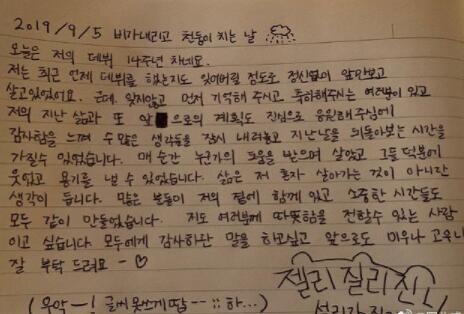 2019/9/5 비가내리고 천둥이 치는 날
오늘은 저의 데뷔 14주년 차네요.
저는 최근 언제 데뷔를 했는지도 잊어버릴 정도로 정신없이 앞만보고
살고있었어요. 근데, 잊지않고 먼저 기억해 주시고 축하해주시는 여러분이 있고
저의 지난 삶과 또 앞으로의 계획도 진심으로 응원해주심에
감사함을 느껴 수 많은 생각들을 잠시 내려놓고 지난날을 되돌아보는 시간을
가질수 있었습니다. 매 순간 누군가의 도움을 받으며 살았고 그들 덕분에
웃었고 용기를 낼 수 있었습니다. 삶은 저 혼자 살아가는 것이 아니란
생각이 듭니다. 많은 분들이 저의 곁에 함께 있고 소중한 시간들도
모두 같이 만들었습니다. 저도 여러분께 따뜻함을 전할수 있는 사람
이고 싶습니다. 모두에게 감사하단 말을 하고싶고 앞으로도 미우나 고우나
잘 부탁 드려요 ~ ♡
젤리 질리 진리
(우악—! 글씨 못쓰게땀--;; 하...)